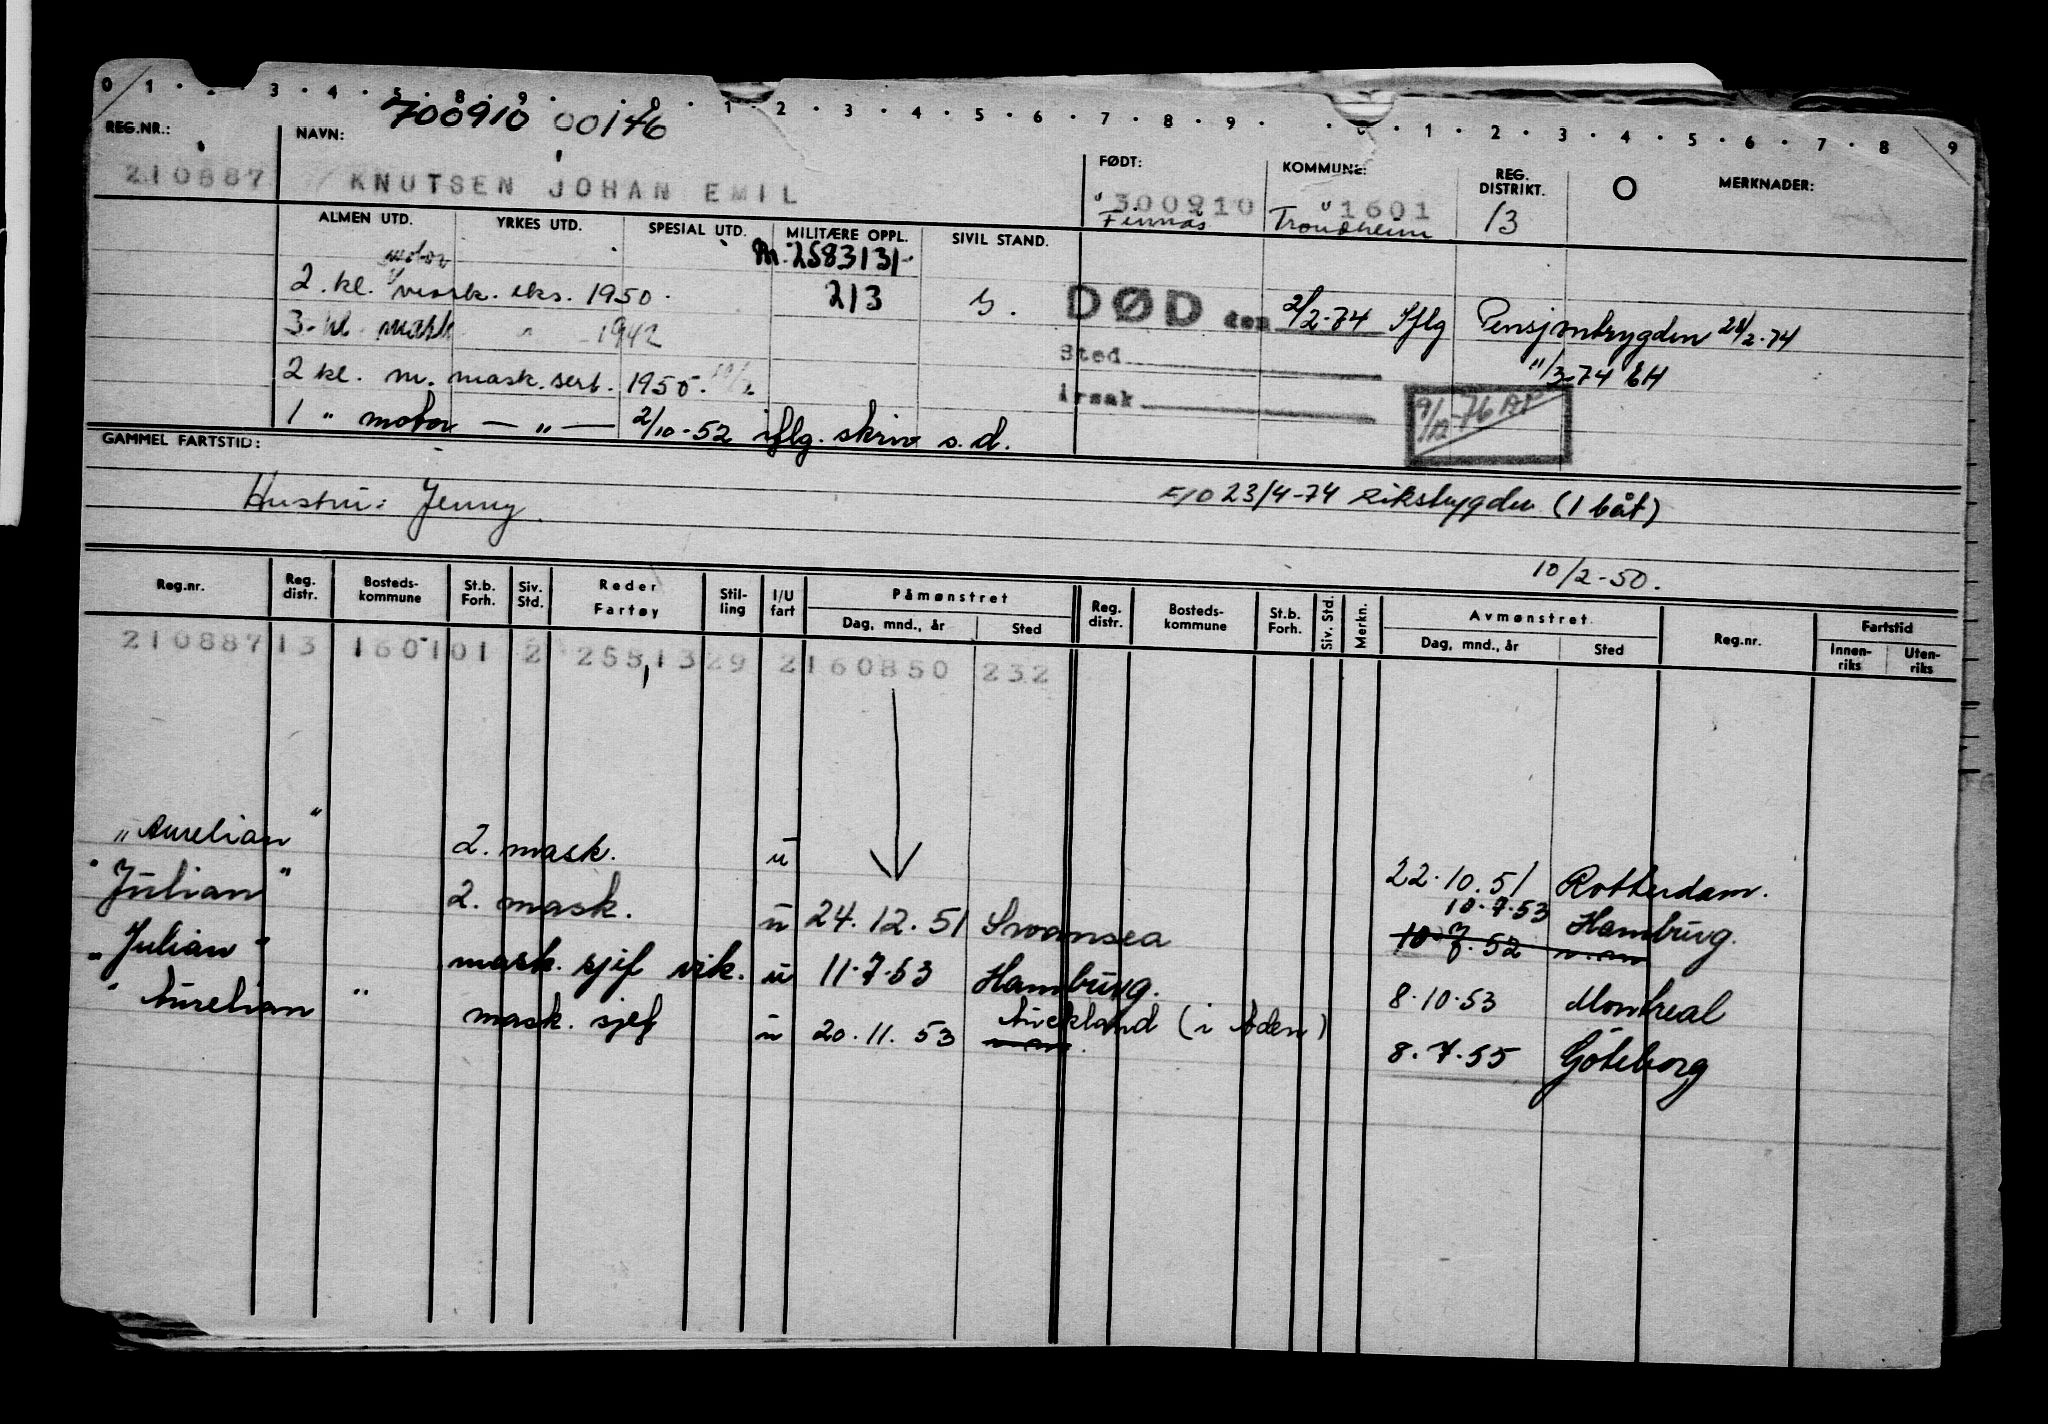 0 1 . . 3 . 4 . 5 . 8 . 9 . . . 0 . 1 . 2 . 3 . 4 . 5 . 6 . 7 . 8 . 9 . . 0 . 1 . 2 . 3 . 4 . 5 . 6 . 7 . 8 . 9
700910 00146
REG.NR.: NAVN: FØDT: KOMMUNE: REG. DISTRIKT. O MERKNADER:
210887 KNUTSEN JOHAN EMIL 300910 1601 13
Finnås Trondheim
ALMEN UTD. YRKES UTD. SPESIAL UTD. MILITÆRE OPPL. SIVIL STAND.
motor 2583131
2. kl. mask. eks. 1950. 213 G. DØD den 2/2-74 Iflg Pensjonstrygden 28/2-74
3. kl mask " 1942 Sted 11/3-74 EH
2 kl. m. mask. sert. 1950. Årsak 9/12-76 AP
1 " motor — " — 2/10-52 iflg. skriv s.d.
GAMMEL FARTSTID:
Hustru: Jenny. 23/4-74 Rikstrygden (1 båt)
10/2-50.
Reg.nr. Reg. distr. Bosteds-kommune St.b. Forh. Siv. Std. Reder Fartøy Stil-ling I/U fart Påmønstret Reg. distr. Bosteds-kommune St.b. Forh. Siv. Std. Merkn. Avmønstret Reg.nr. Fartstid
Dag, mnd., år Sted Dag, mnd., år Sted Innen-riks Uten-riks
210887 13 1601 01 2 258,13 29 2 160850 232
"Aurelian" 2. mask. u 22.10.51 Rotterdam.
"Julian" 2. mask. u 24.12.51 Swansea 10.7.53 Hamburg.
10.7.52
"Julian" mask. sjef vik. u 11.7.53 Hamburg. 8.10.53 Montreal
"Aurelian" mask. sjef u 20.11.53 Auckland (i Aden) 8.7.55 Göteborg